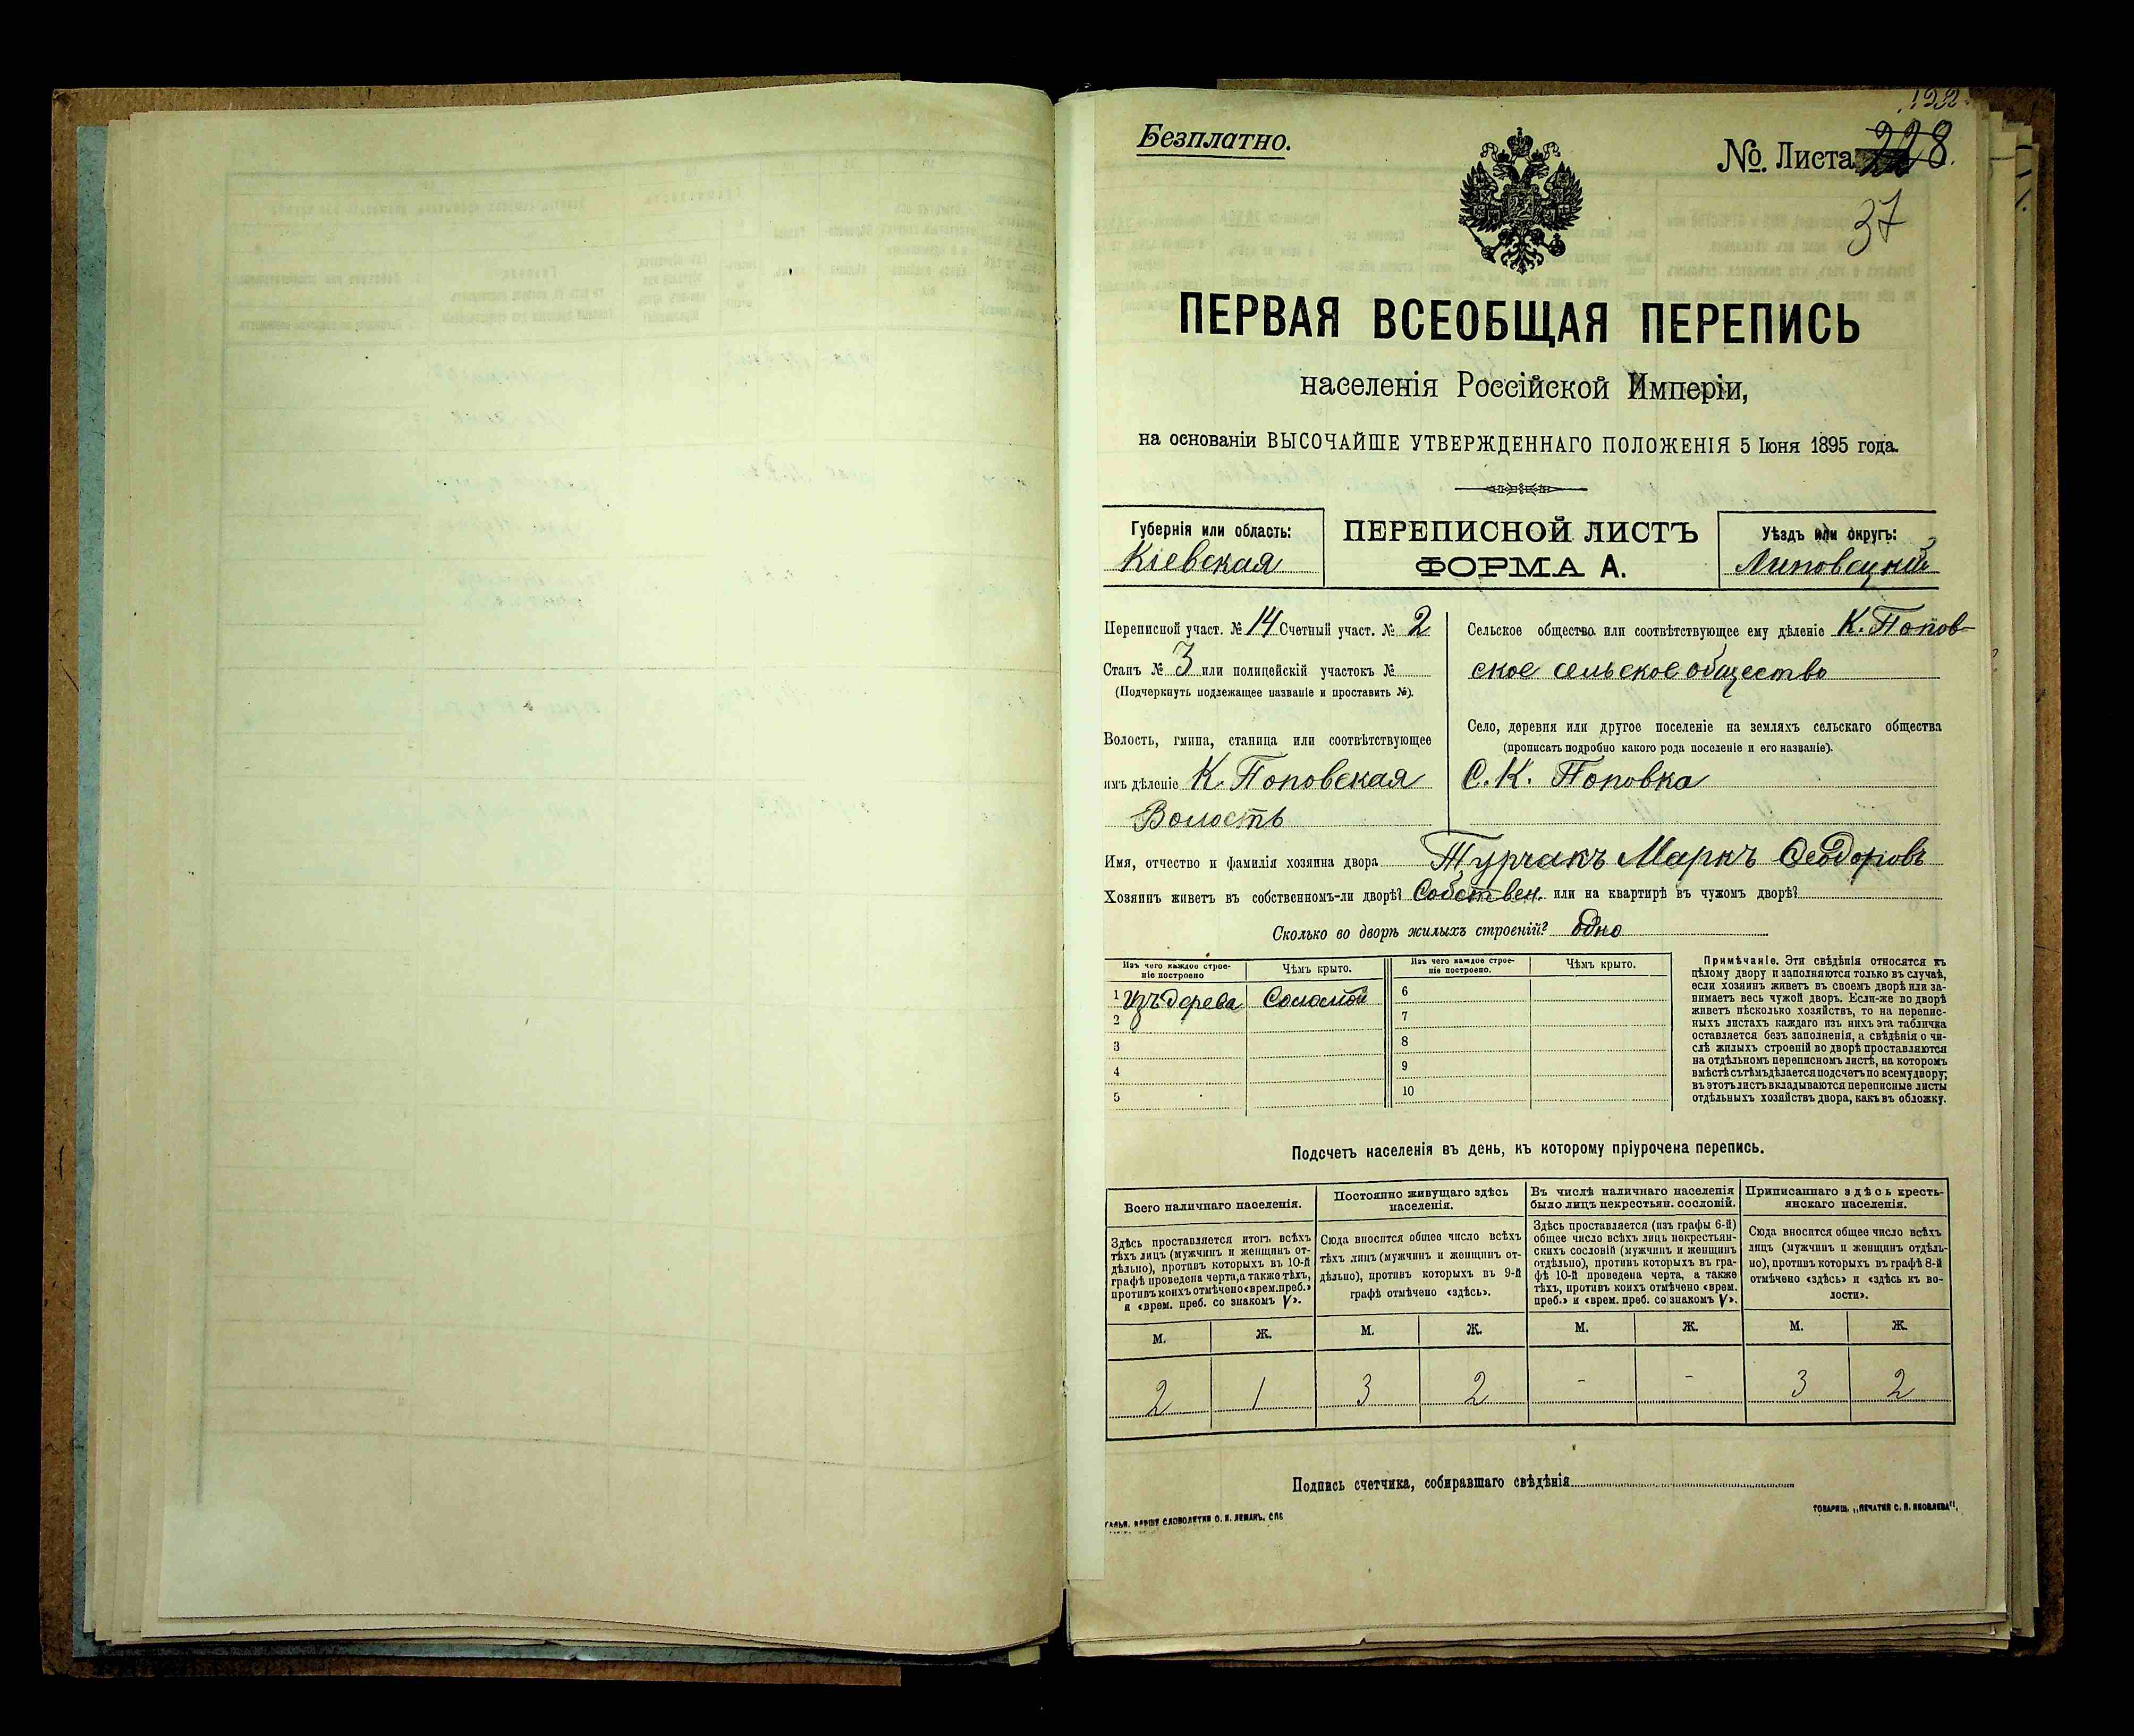 Безплатно.
№ Листа 228.
37
ПЕРВАЯ ВСЕОБЩАЯ ПЕРЕПИСЬ
населенія Россійской Имперіи,
на основаніи ВЫСОЧАЙШЕ УТВЕРЖДЕННАГО ПОЛОЖЕНІЯ 5 Іюня 1895 года.
Губернія или область:
Кіевская
ПЕРЕПИСНОЙ ЛИСТЪ
ФОРМА А.
Уѣздъ или округъ:
Липовецкій
Переписной участ. № 14 Счетный участ. № 2
Станъ № 3 или полицейскій участокъ №
(Подчеркнуть подлежащее названіе и проставить №).
Волость, гмина, станица или соотвѣтствующее
имъ дѣленіе К. Поповская
Волость
Сельское общество или соотвѣтствующее ему дѣленіе К. Попов-
ское сельское общество
Село, деревня или другое поселеніе на земляхъ сельскаго общества
(прописать подробно какого рода поселеніе и его названіе).
С. К. Поповка
Имя, отчество и фамилія хозяина двора Турчакъ Маркъ Феодоровъ
Хозяинъ живетъ въ собственномъ-ли дворѣ? Собствен. или на квартирѣ въ чужомъ дворѣ?
Сколько во дворѣ жилыхъ строеній? одно
Изъ чего каждое строе-
ніе построено
Чѣмъ крыто.
Изъ чего каждое строе-
ніе построено.
Чѣмъ крыто.
1 Изъ дерева Соломой
2
3
4
5
6
7
8
9
10
Примѣчаніе. Эти свѣдѣнія относятся къ
цѣлому двору и заполняются только въ случаѣ,
если хозяинъ живетъ въ своемъ дворѣ или за-
нимаетъ весь чужой дворъ. Если-же во дворѣ
живетъ нѣсколько хозяйствъ, то на перепис-
ныхъ листахъ каждаго изъ нихъ эта табличка
оставляется безъ заполненія, а свѣдѣнія о чи-
слѣ жилыхъ строеній во дворѣ проставляются
на отдѣльномъ переписномъ листѣ, на которомъ
вмѣстѣ съ тѣмъ дѣлается подсчетъ по всему двору;
въ этотъ листъ вкладываются переписные листы
отдѣльныхъ хозяйствъ двора, какъ въ обложку.
Подсчетъ населенія въ день, къ которому пріурочена перепись.
Всего наличнаго населенія.
Здѣсь проставляется итогъ всѣхъ
тѣхъ лицъ (мужчинъ и женщинъ от-
дѣльно), противъ которыхъ въ 10-й
графѣ проведена черта, а также тѣхъ,
противъ коихъ отмѣчено «врем. преб.»
и «врем. преб. со знакомъ V».
Постоянно живущаго здѣсь
населенія.
Сюда вносится общее число всѣхъ
тѣхъ лицъ (мужчинъ и женщинъ от-
дѣльно), противъ которыхъ въ 9-й
графѣ отмѣчено «здѣсь».
Въ числѣ наличнаго населенія
было лицъ некрестьян. сословій.
Здѣсь проставляется (изъ графы 6-й)
общее число всѣхъ лицъ некрестьян-
скихъ сословій (мужчинъ и женщинъ
отдѣльно), противъ которыхъ въ гра-
фѣ 10-й проведена черта, а также
тѣхъ, противъ коихъ отмѣчено «врем.
преб.» и «врем. преб. со знакомъ V».
Приписаннаго здѣсь кресть-
янскаго населенія.
Сюда вносится общее число всѣхъ
лицъ (мужчинъ и женщинъ отдѣль-
но), противъ которыхъ въ графѣ 8-й
отмѣчено «здѣсь» и «здѣсь къ во-
лости».
М. Ж. М. Ж. М. Ж. М. Ж.
2 1 3 2 - - 3 2
Подпись счетчика, собиравшаго свѣдѣнія
СЛОВОЛИТНИ О. И. ЛЕМАНЪ. СПБ
ТОВАРИЩ. „ПЕЧАТНЯ С. П. ЯКОВЛЕВА",